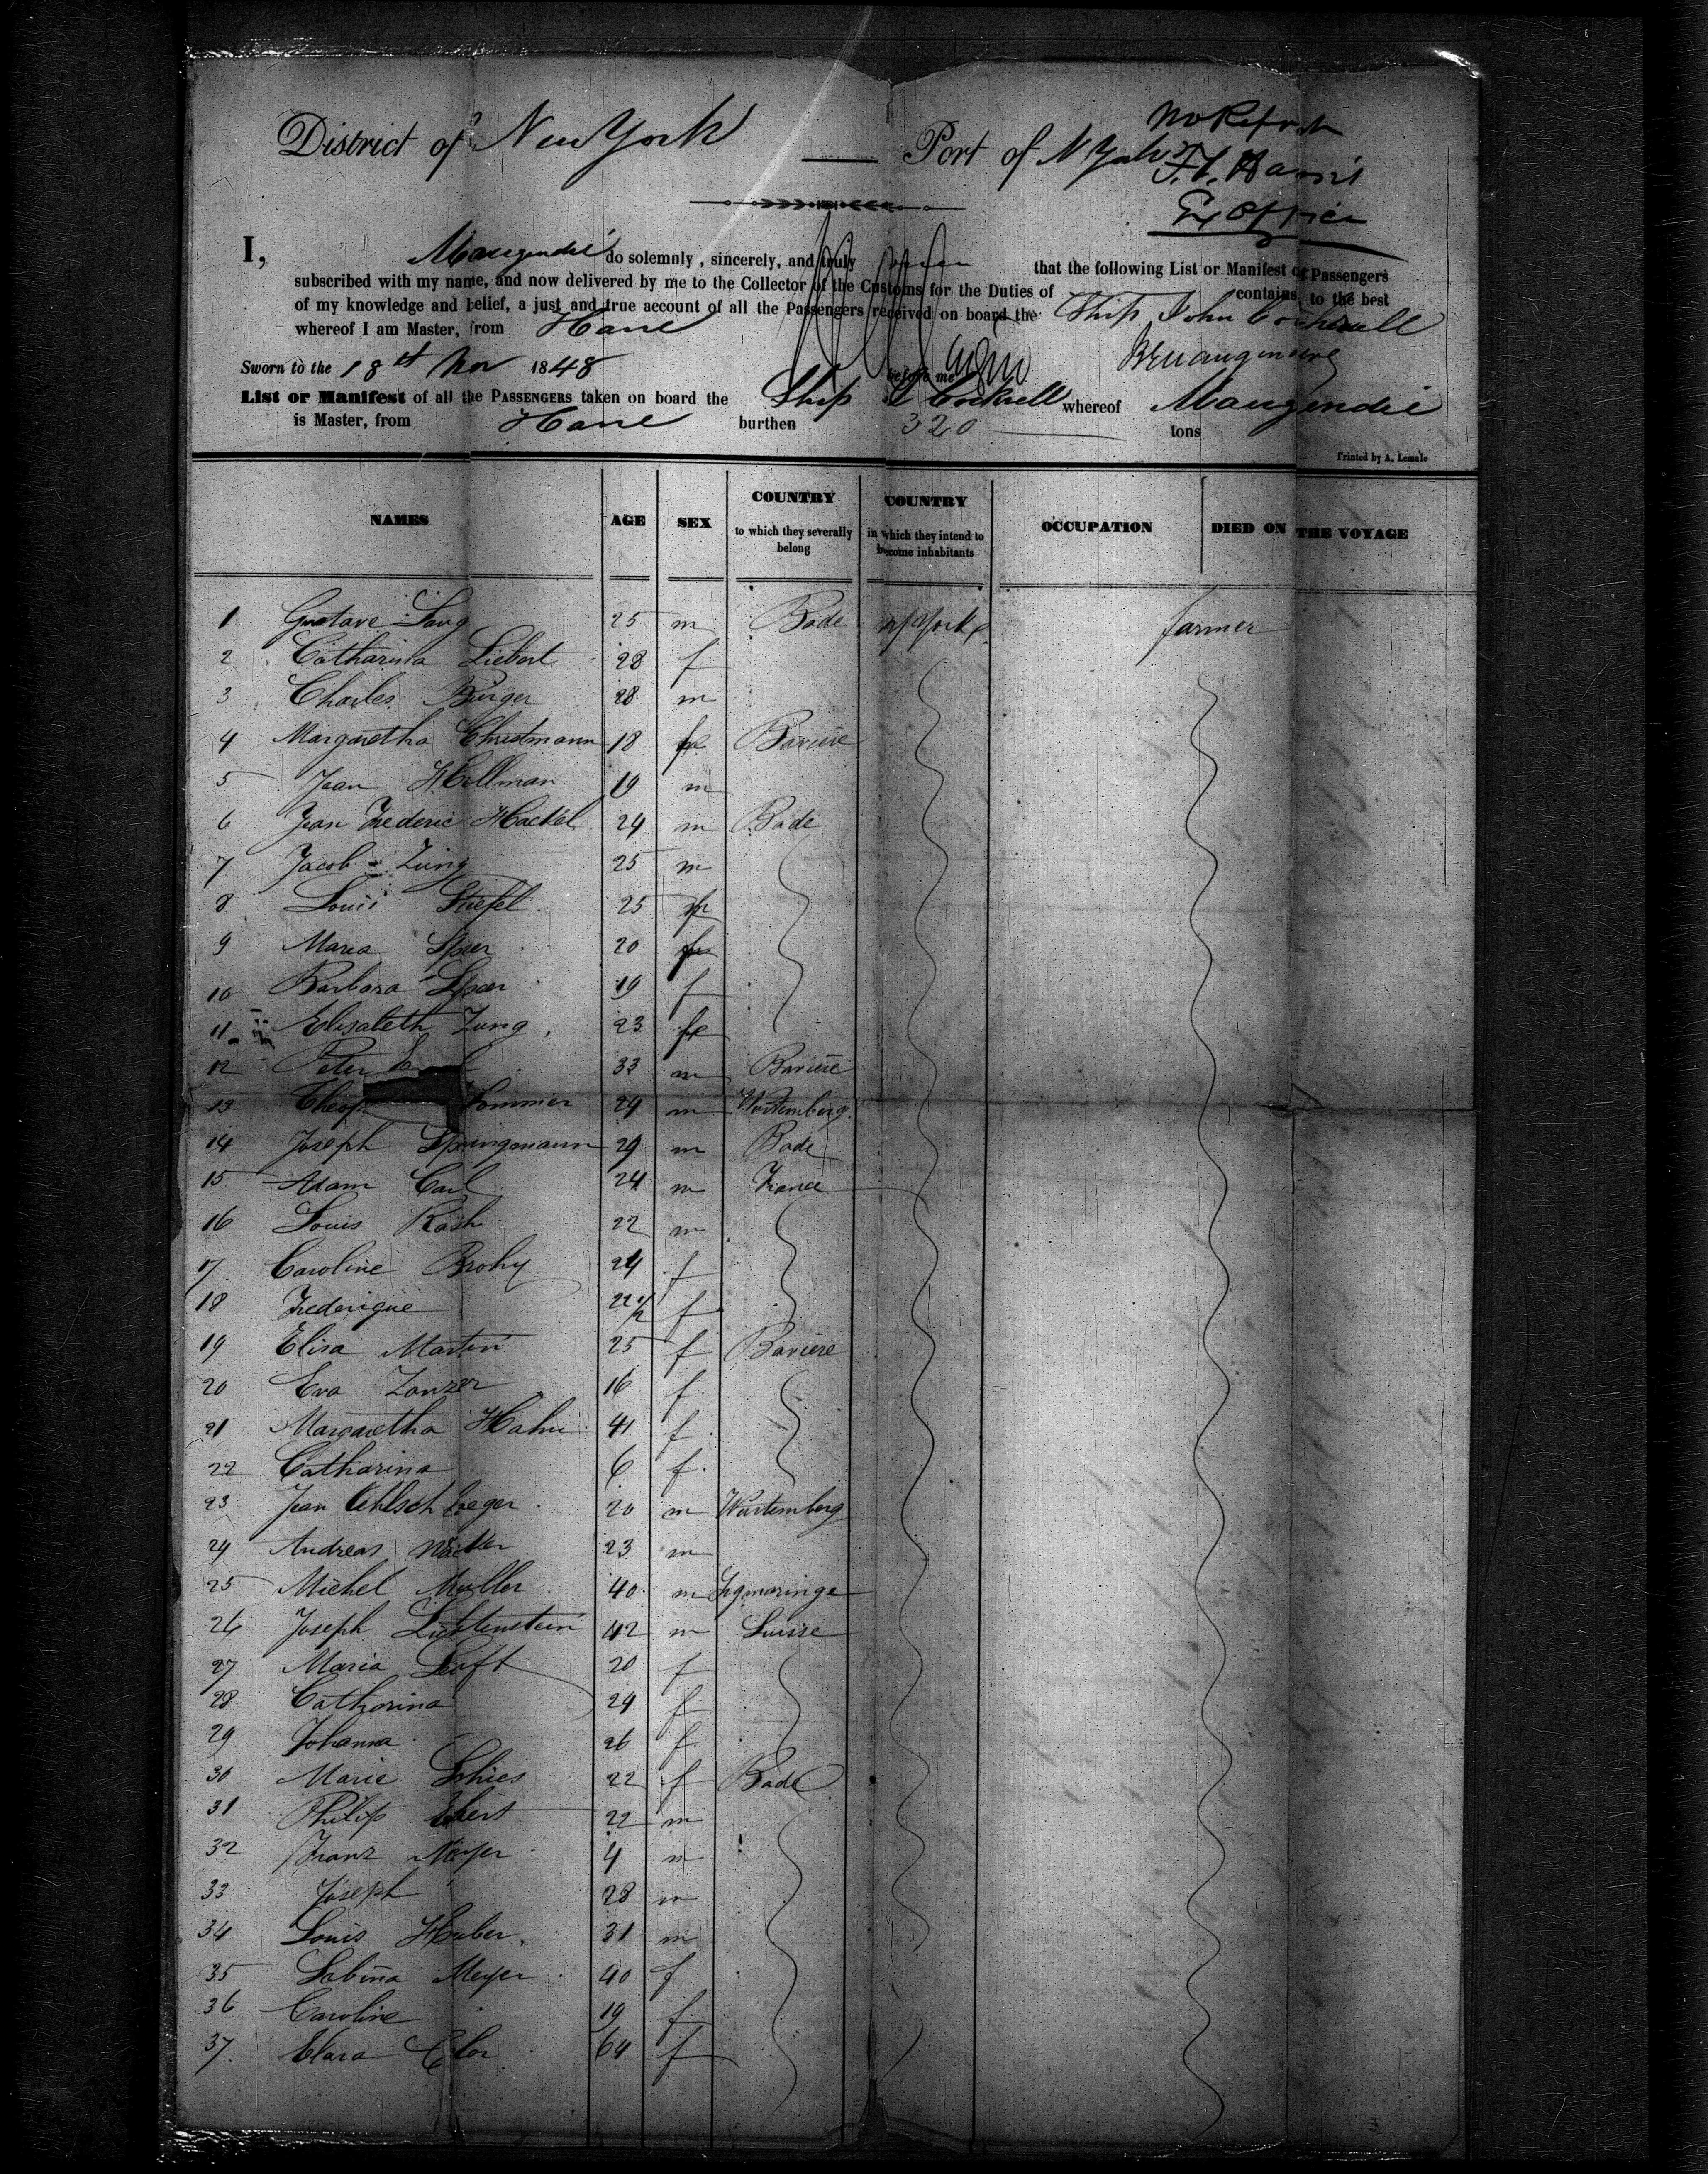 District of New York Port of N York
No Report
Ex Officer
I, Maugendie do solemnly, sincerely, and truly that the following List or Manifest of Passengers
subscribed with my name, and now delivered by me to the Collector of the Customs for the Duties of contains, to the best
of my knowledge and belief, a just and true account of all the Passengers received on board the Ship John Cockerell
whereof I am Master, from Havre
Sworn to the 18th Nov 1848 before me
List or Manifest of all the PASSENGERS taken on board the Ship J. Cockrell whereof Maugendie
is Master, from Havre burthen 320 tons
Printed by A. Lemale
NAMES AGE SEX COUNTRY to which they severally belong COUNTRY in which they intend to become inhabitants OCCUPATION DIED ON THE VOYAGE
1 Gustave Lang 25 m Bade N York farmer
2 Catharina Liebert 28 f
3 Charles Burger 28 m
4 Margaretha Christmann 18 Baviere
5 Jean Hellman 19 m
6 Jean Frederic Hackel 24 m Bade
7 Jacob Zung 25 m
8 Louis Stiefel 25
9 Maria Speer 20
10 Barbara Speer 19 f
11 Elisabeth Zung 23
12 Peter 33 m Baviere
13 Sommer 24 m Wurtemberg
14 Joseph Springmann 29 m Bade
15 Adam Carl 24 m France
16 Louis Rash 22 m
17 Caroline Brohy 24 f
18 Frederique f
19 Elisa Martin 25 f Baviere
20 Eva Zanzer 16 f
21 Margaretha Hahn 41 f
22 Catharina 6 f
23 Jean Oehlschlaeger 20 m Wurtemberg
24 Andreas 23 m
25 Michel Muller 40 m
26 Joseph Lichtenstein 42 m Suisse
27 Maria 20 f
28 Catharina 24 f
29 Johanna 26 f
30 Marie Schies 22 f Bade
31 Philip Ebert 22 m
32 Franz Meyer 4 m
33 Joseph 28 m
34 Louis Huber 31 m
35 Sabina Meyer 40 f
36 Caroline 19 f
37 Clara 64 f